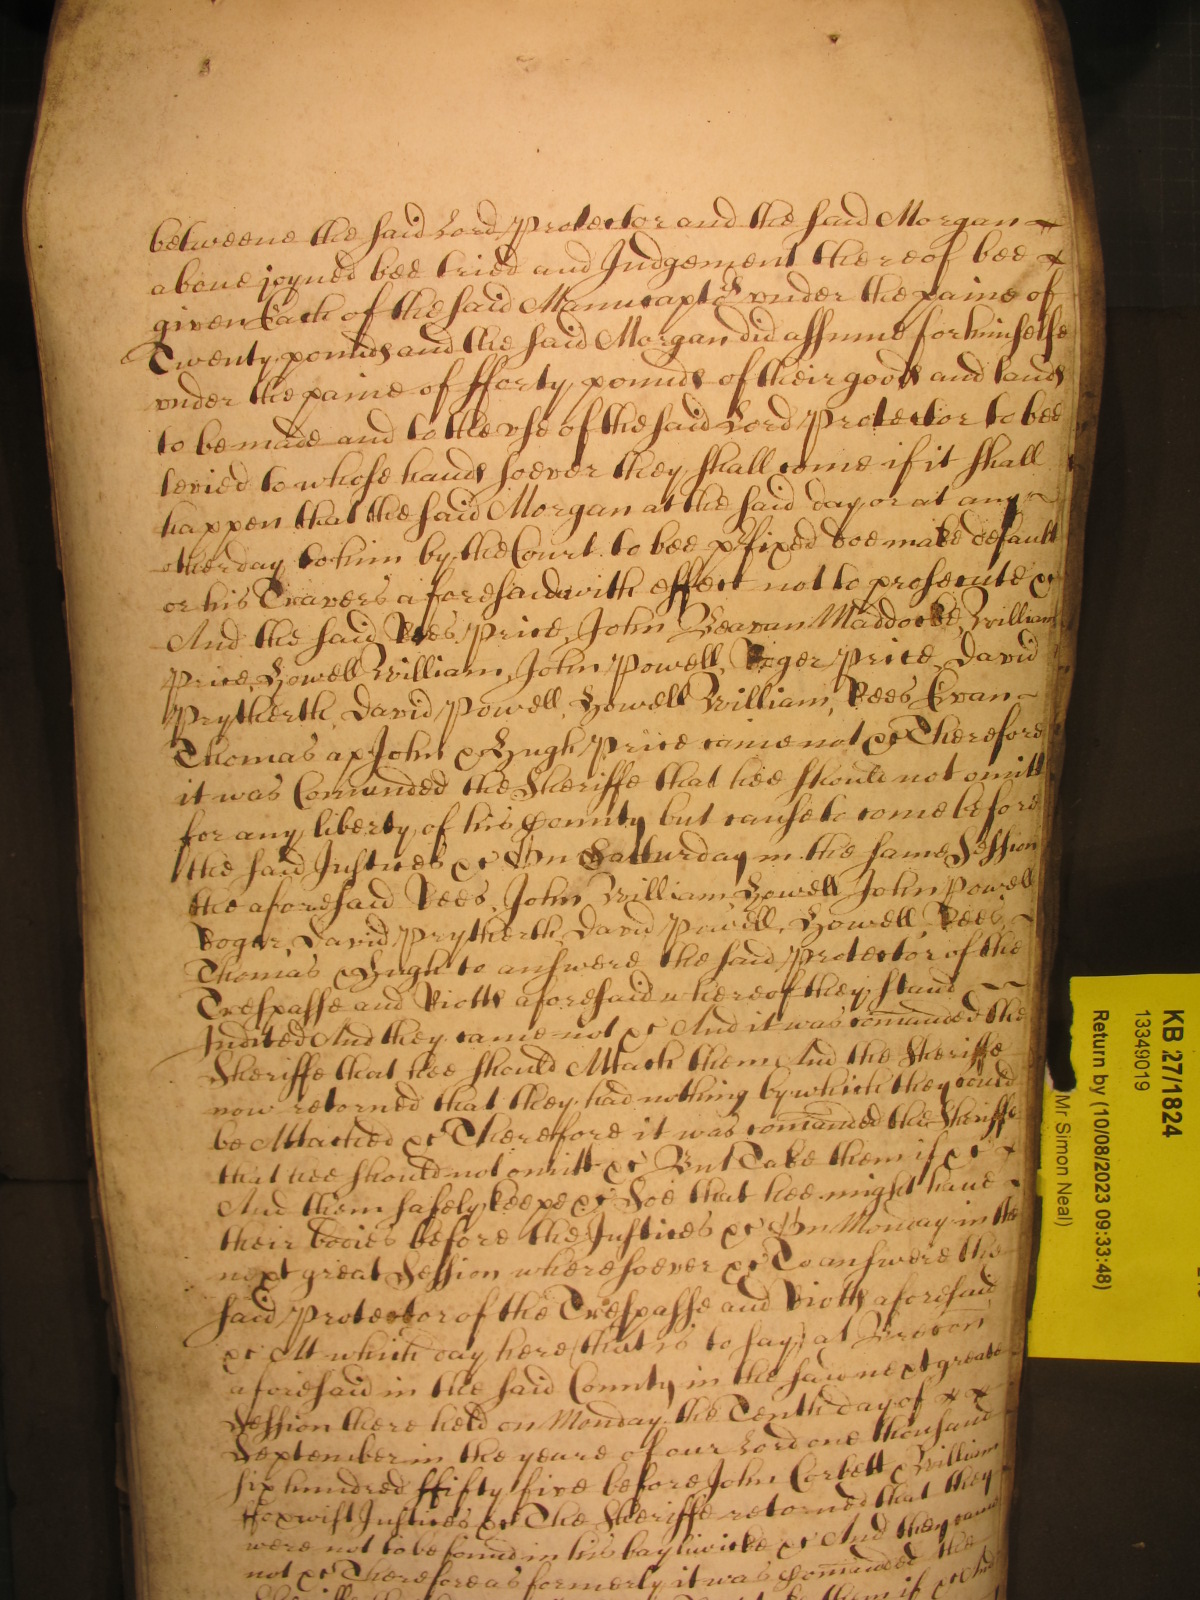 betweene the said Lord Protector and the said Morgan
above joyned bee tried and Judgement thereof bee
given Each of the said Manucaptors under the paine of
Twenty pounds and the said Morgan did assume for himselfe
vnder the paine of fforty pounds of their goods and lands
to be made and to the vse of the said Lord Protector to bee
levied to whose hands soever they shall come if it shall
happen that the said Morgan at the said day or at any
other day to him by the Court to bee pfixed doe make default
or his Travers aforesaid with effect not to prosecute &c
And the said Rees Price, John Beavan Maddocke, William
Price, Howell William, John Powell, Roger Price, David
Prytherth, David Powell, Howell William, Rees Evan
Thomas ap John & Hugh Price came not &c Therefore
it was Comanded the Sheriffe that hee should not omitt
for any liberty of his County but cause to come before
the said Justices &c On Satturday in the same Session
the aforesaid Rees, John, William Howell John Powell
Roger, David Prytherth David Powell, Howell, Rees,
Thomas & Hugh to answere the said Protector of the
Trespasse and Riotts aforesaid whereof they stand
Indited And they came not &c And it was comanded the
Sheriffe that hee should Attach them And the Sheriffe
now retorned that they had nothing by which they could
be Attached &c Therefore it was comanded the Sheriffe
that hee should not omitt &c But Take them if &c
And them safely keepe &c Soe that hee might have
their bodies before the Justices &c On Monday in the
next great Session wheresoever &c To answere the
said Protector of the Trespasse and Riotts aforesaid
&c At which day here (that is to say) at Brecon
aforesaid in the said County in the said next greate
Session there held on Monday the Tenth day of
September in the yeare of our Lord one thousand
six hundred ffifty five before John Corbett & William
Foxwist Justices &c The Sheriffe retorned that they
were not to be found in his bayliwicke &c And they came
not &c Therefore as formerly it was Comanded the
them if &c And
KB 27/1824
13349019
Return by (10/08/2023 09:33:48)
Mr Simon Neal)